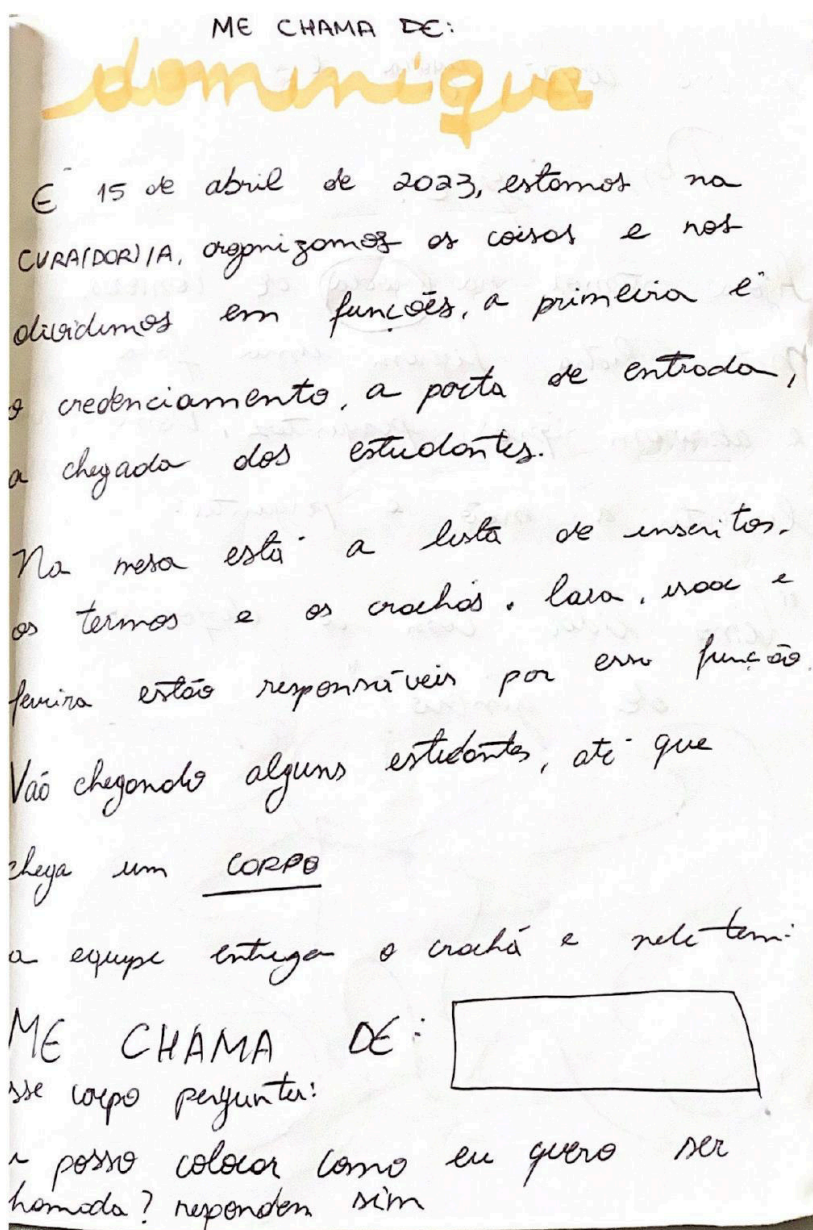 ME CHAMA DE:
dominique
É 15 de abril de 2023, estamos na
CURA(DOR)IA, organizamos as coisas e nos
dividimos em funções, a primeira é
o credenciamento, a porta de entrada,
a chegada dos estudantes.
Na mesa está a lista de inscritos,
os termos e os crachás. lara, isac e
estão responsáveis por essa função.
Vão chegando alguns estudantes, até que
chega um CORPO
a equipe entrega o crachá e nele tem:
ME CHAMA DE:
sse corpo pergunta:
posso colocar como eu quero ser
hamada? respondem sim